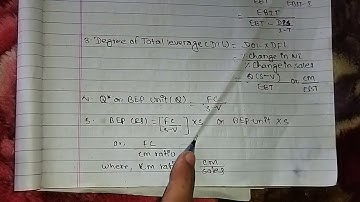 EBIT
EBT - DPS
1-T
3. Degree of Total leverage (DTL) = DOL × DFL
= % Change in NI
% Change in sales
= Q(S-V) or CM
EBT EBT
4. Q* or BEP Unit (Q) = FC
S-V
5. BEP (RS) = [FC / S-V] × S or BEP Unit × S
or FC
CM ratio
where, CM ratio = CM
Sales